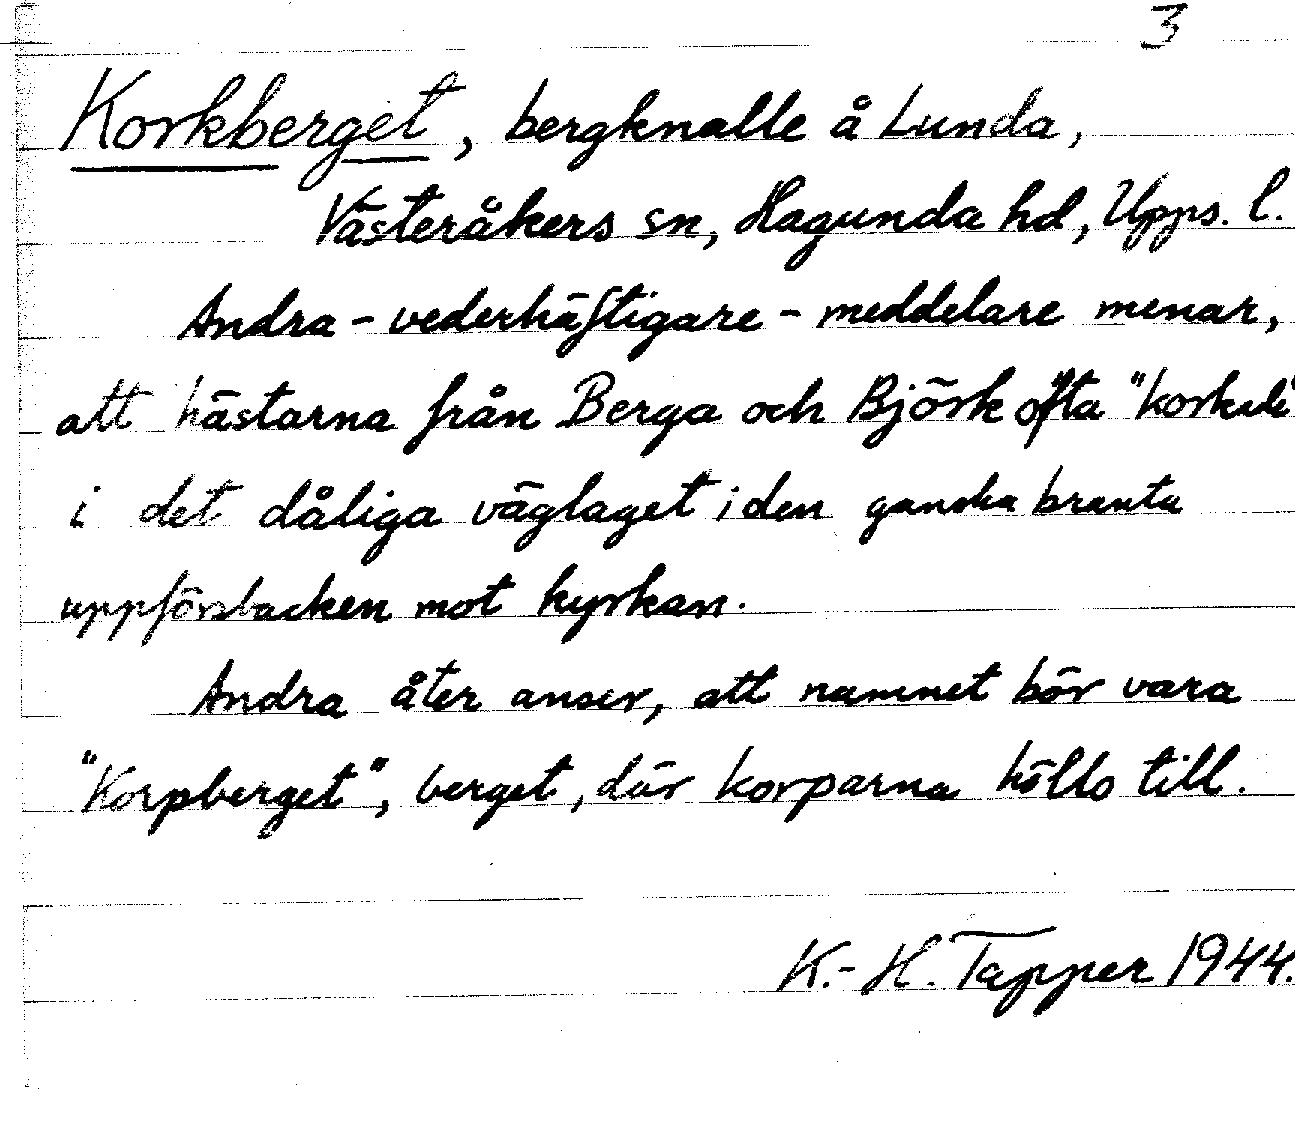 3
Korkberget, bergknalle å Lunda,
Västeråkers sn, Hagunda hd, Upps. l.
Andra - vederhäftigare - meddelare menar,
att hästarna från Berga och Björk ofta "korkade"
i det dåliga väglaget i den ganska branta
uppförsbacken mot kyrkan.
Andra åter anser, att namnet bör vara
"Korpberget", berget, där korparna höllo till.
K.-H. Tapper 1944.